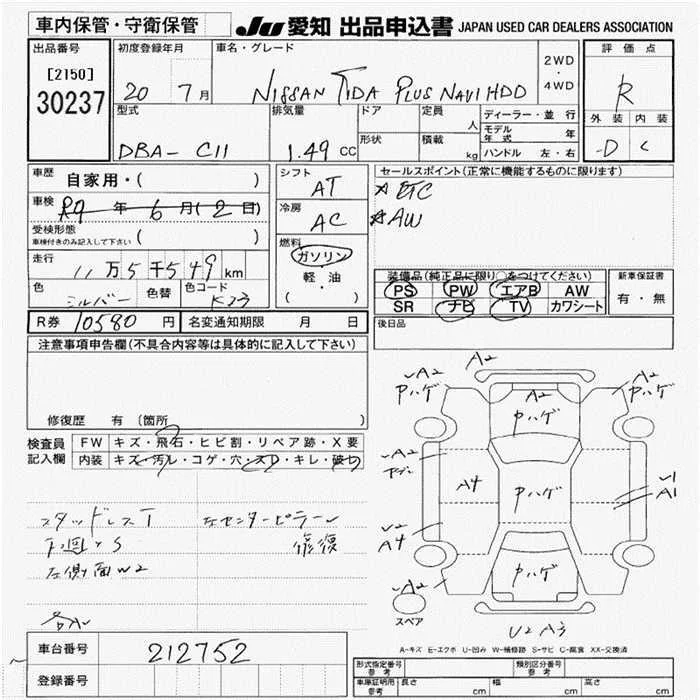 車内保管・守衛保管 JU 愛知 出品申込書 JAPAN USED CAR DEALERS ASSOCIATION
出品番号 初度登録年月 車名・グレード 評価点
[2150]
30237
20 7月 NISSAN TIDA PLUS NAVI HDD 2WD・4WD R
型式 排気量 ドア 定員 人 ディーラー・並行 外装 内装
モデル年式 年
DBA-C11 1.49 CC 形状 積載 kg ハンドル 左・右 D C
車歴 自家用・( ) シフト AT セールスポイント(正常に機能するものに限ります)
☆ ETC
☆AW
車検 R9年6月(2日) 冷房 AC
受検形態
車検付きのみ記入して下さい ( )
燃料 ガソリン
軽・油
( )
走行 11万5千549km
装備品(純正品に限り○をつけてください) 新車保証書
PS PW エアB AW 有・無
SR ナビ TV カワシート
色 シルバー 色替 色コード K23
後日品
R券 10580円 名変通知期限 月 日
注意事項申告欄(不具合内容等は具体的に記入して下さい)
修復歴 有 (箇所 )
検査員記入欄 FW キズ・飛石・ヒビ割・リペア跡・X要
内装 キズ・汚レ・コゲ・穴・スレ・キレ・破レ
スタッドレスT 左センターピラー
下回りS 修復
左側面W2
各A1
A2
A2 Pハゲ
A2 Pハゲ
A2 Pハゲ
A2
A4
Pハゲ
U1
A1
U2
A4
Pハゲ
A2
スペア
U2 A3
A-キズ E-エクボ U-凹み W-補修跡 S-サビ C-腐食 XX-交換済
車台番号 212752
登録番号
形式指定番号 参考 類別区分番号 参考
車庫証明用 参考 長さ cm 幅 cm 高さ cm